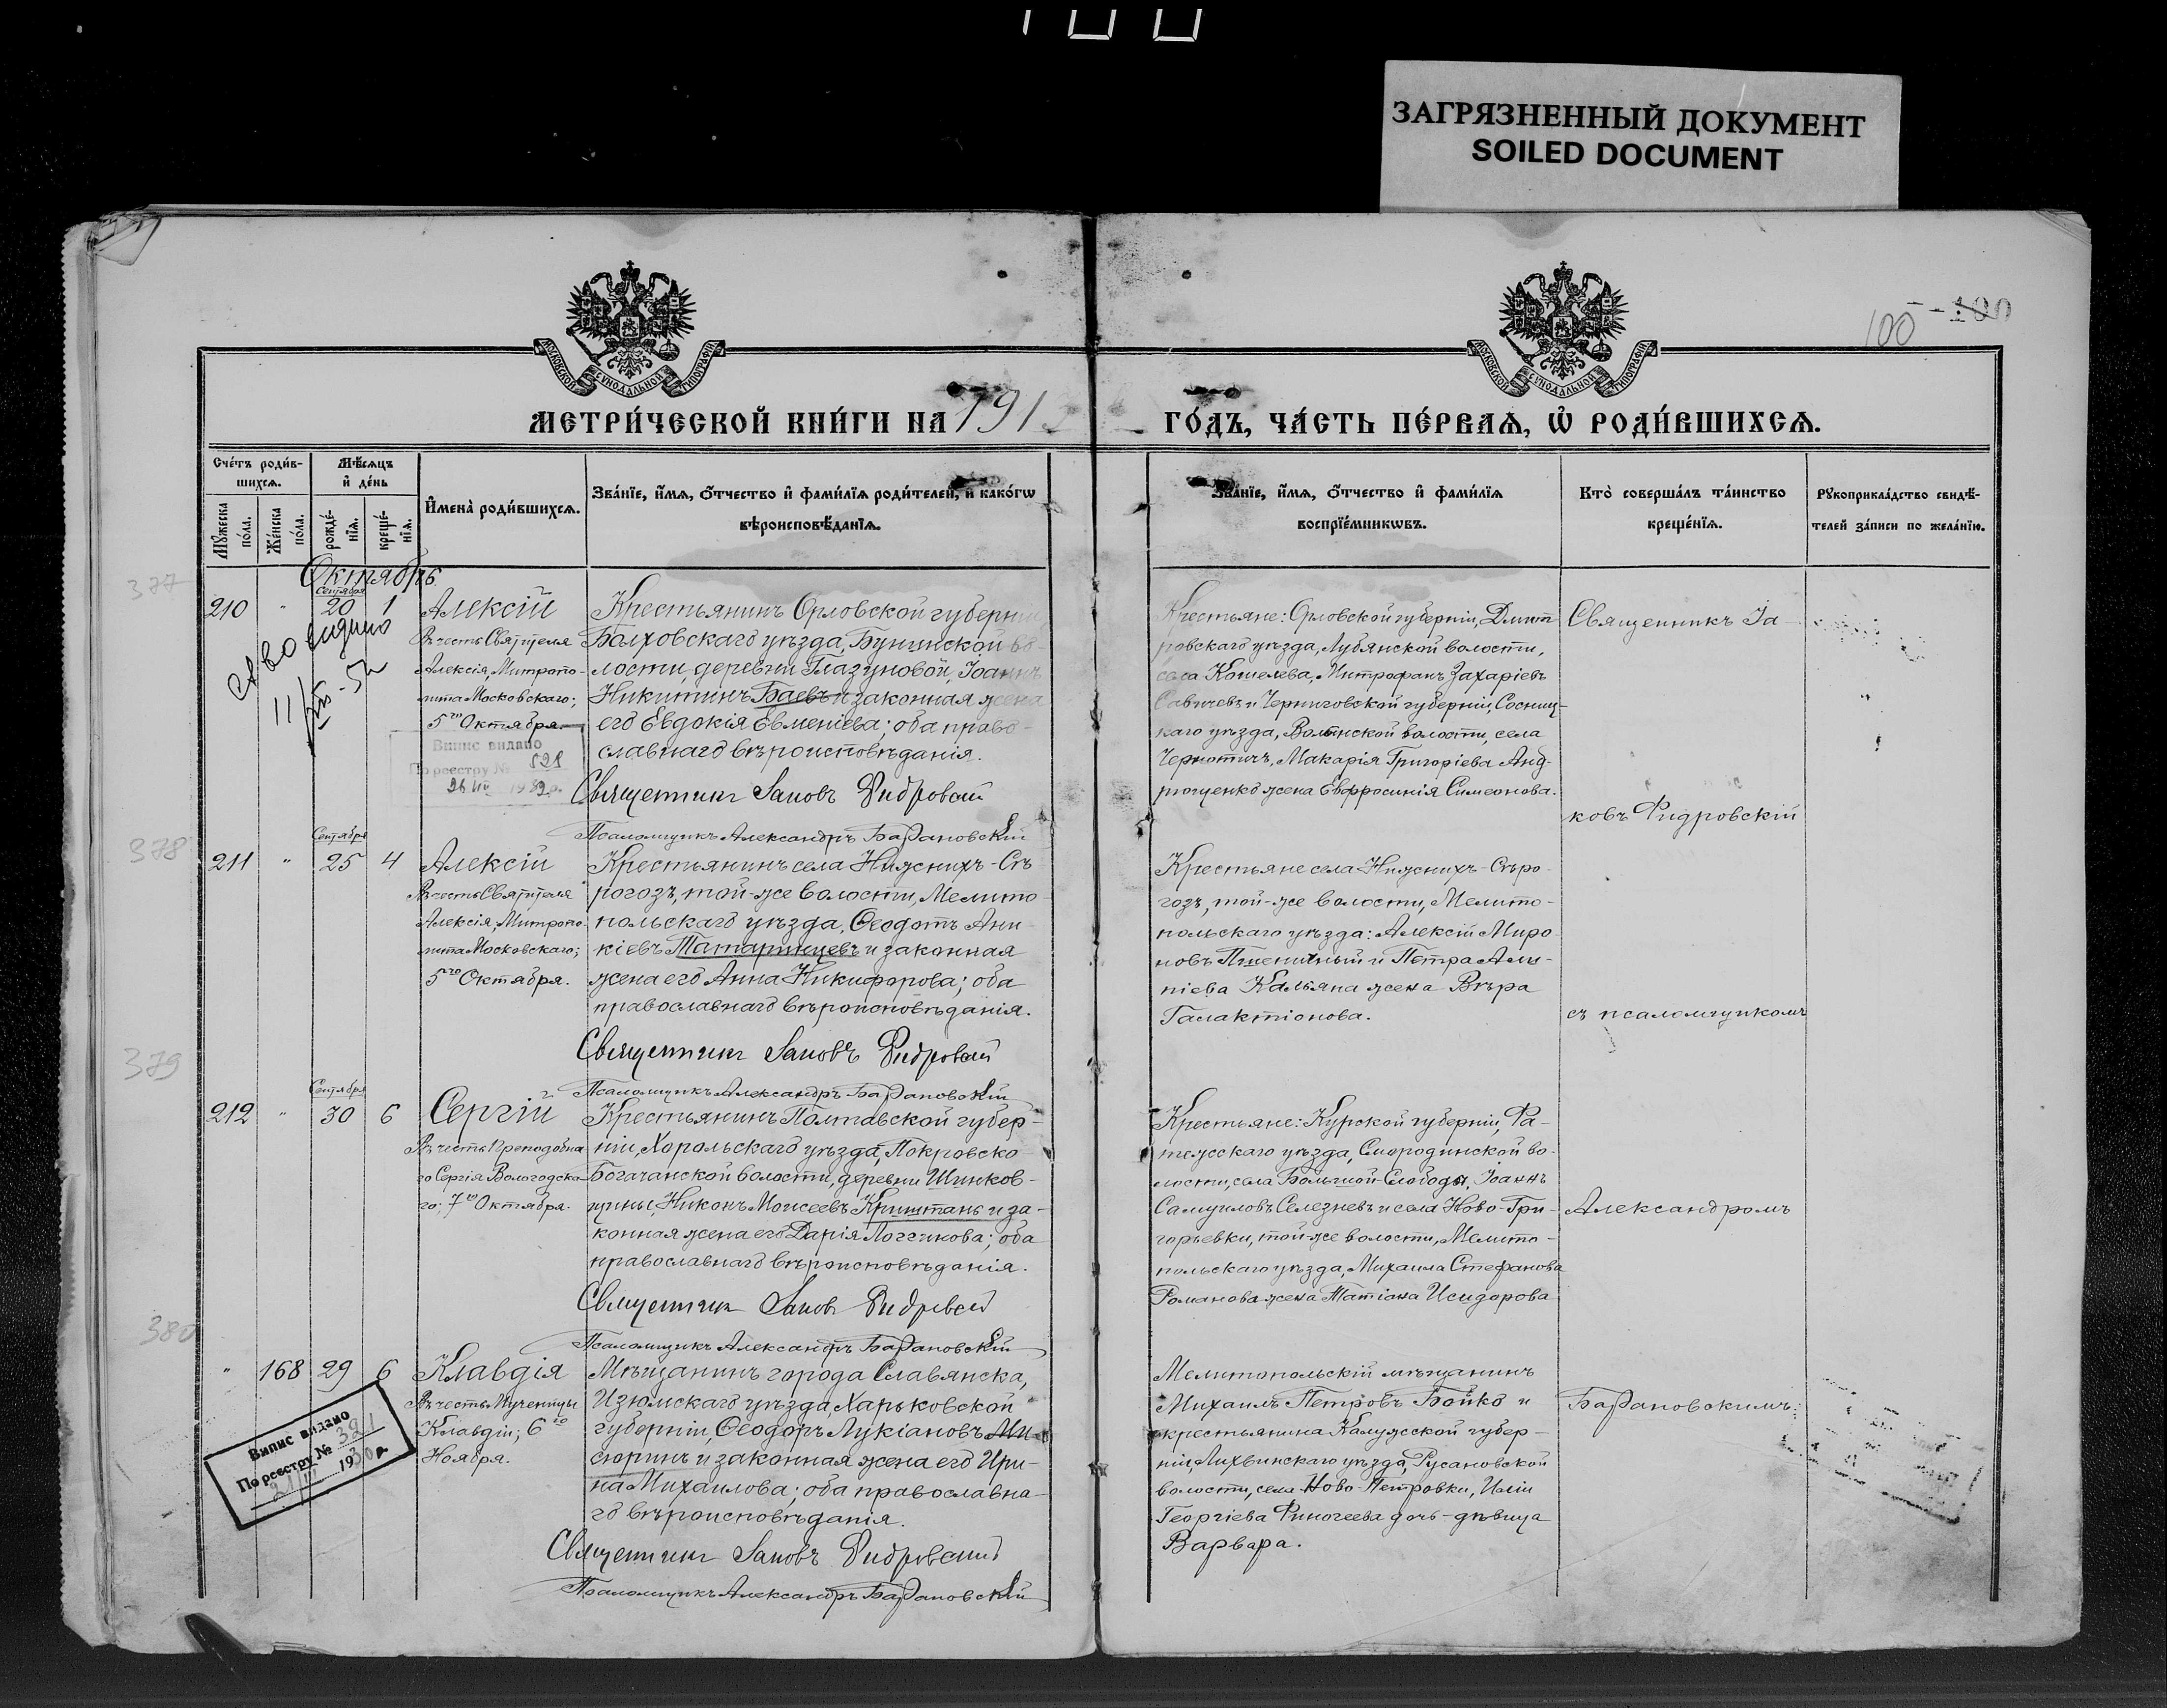 ЗАГРЯЗНЕННЫЙ ДОКУМЕНТ
SOILED DOCUMENT
100
100
МОСКОВСКОЙ СѴНОДАЛЬНОЙ ТИПОГРАФІИ
МОСКОВСКОЙ СѴНОДАЛЬНОЙ ТИПОГРАФІИ
МЕТРИ́ЧЕСКОЙ КНИ́ГИ НА 191
ГО́ДЪ, ЧА́СТЬ ПЕ́РВАѦ, Ѡ҆ РОДИ́ВШИХСѦ.
Сче́тъ роди́в-
шихсѧ.
Мꙋ́жеска по́ла.
Же́нска по́ла.
Мѣ́сѧцъ
и҆ де́нь
рожде́-
нїѧ.
креще́-
нїѧ.
И҆мена̀ роди́вшихсѧ.
Зва́нїе, и҆́мѧ, ѻ҆́тчество и҆ фами́лїѧ роди́телей, и҆ како́гѡ
вѣроисповѣ́данїѧ.
Зва́нїе, и҆́мѧ, ѻ҆́тчество и҆ фами́лїѧ
воспрїе́мникѡвъ.
Кто̀ соверша́лъ та́инство
креще́нїѧ.
Рꙋкоприкла́дство свидѣ́-
телей за́писи по жела́нїю.
Октябрь
377
210 " Сентября 20 1
Алексій
Въ честь Святителя
Алексія, Митропо-
лита Московскаго;
5го Октября.
Випис видано
По реєстру № 821
Крестьянинъ Орловской губерніи
Болховскаго уѣзда, Бунинской во-
лости, деревни Глазуновой, Іоаннъ
Никитинъ Баевъ и законная жена
его Евдокія Евменіева; оба право-
славнаго вѣроисповѣданія.
Священникъ Іаковъ Фидровскій
Псаломщикъ Александръ Барановскій
Крестьяне: Орловской губерніи, Дмит-
ровскаго уѣзда, Лубянской волости,
села Кошелева, Митрофанъ Захаріевъ
Савичевъ и Черниговской губерніи, Сосниц-
каго уѣзда, Волынской волости, села
Чернотичъ, Макарія Григоріева Анд-
рющенко жена Евфросинія Симеонова.
Священникъ Іа-
ковъ Фидровскій
378
211 " Сентября 25 4
Алексій
Въ честь Святителя
Алексія, Митропо-
лита Московскаго;
5го Октября.
Крестьянинъ села Нижнихъ-Сѣ-
рогозъ, той-же волости, Мелито-
польскаго уѣзда, Ѳеодотъ Ани-
кіевъ Татаринцевъ и законная
жена его Анна Никифорова; оба
православнаго вѣроисповѣданія.
Священникъ Іаковъ Фидровскій
Псаломщикъ Александръ Барановскій
Крестьяне села Нижнихъ-Сѣро-
гозъ, той-же волости, Мелито-
польскаго уѣзда: Алексій Миро-
новъ Пшеничный и Петра Али-
піева Касьяна жена Вѣра
Галактіонова.
съ псаломщикомъ
379
212 " Сентября 30 6
Сергій
Въ честь Преподобна-
го Сергія Вологодска-
го; 7го Октября.
Крестьянинъ Полтавской губер-
ніи, Хорольскаго уѣзда, Покровско-
Богачанской волости, деревни Шинков-
щины, Никонъ Моисеевъ Криштань и за-
конная жена его Дарія Логгинова; оба
православнаго вѣроисповѣданія.
Священникъ Іаковъ Фидровскій
Псаломщикъ Александръ Барановскій
Крестьяне: Курской губерніи, Фа-
тежскаго уѣзда, Смородинской во-
лости, села Большой-Слободы, Іоаннъ
Самуиловъ Селезневъ и села Ново-Гри-
горьевки, той-же волости, Мелито-
польскаго уѣзда, Михаила Стефанова
Романова жена Татіана Исидорова
Александромъ
380
" 168 29 6
Клавдія
Въ честь Мученицы
Клавдіи; 6го
Ноября.
Випис видано
По реєстру № 391
1930 р.
Мѣщанинъ города Славянска,
Изюмскаго уѣзда, Харьковской
губерніи, Ѳеодоръ Лукіановъ Ми-
сюринъ и законная жена его Ири-
на Михаилова; оба православна-
го вѣроисповѣданія.
Священникъ Іаковъ Фидровскій
Псаломщикъ Александръ Барановскій
Мелитопольскій мѣщанинъ
Михаилъ Петровъ Бойко и
крестьянина Калужской губер-
ніи, Лихвинскаго уѣзда, Русановской
волости, села Ново-Петровки, Иліи
Георгіева Финогеева дочь-дѣвица
Варвара.
Барановскимъ.